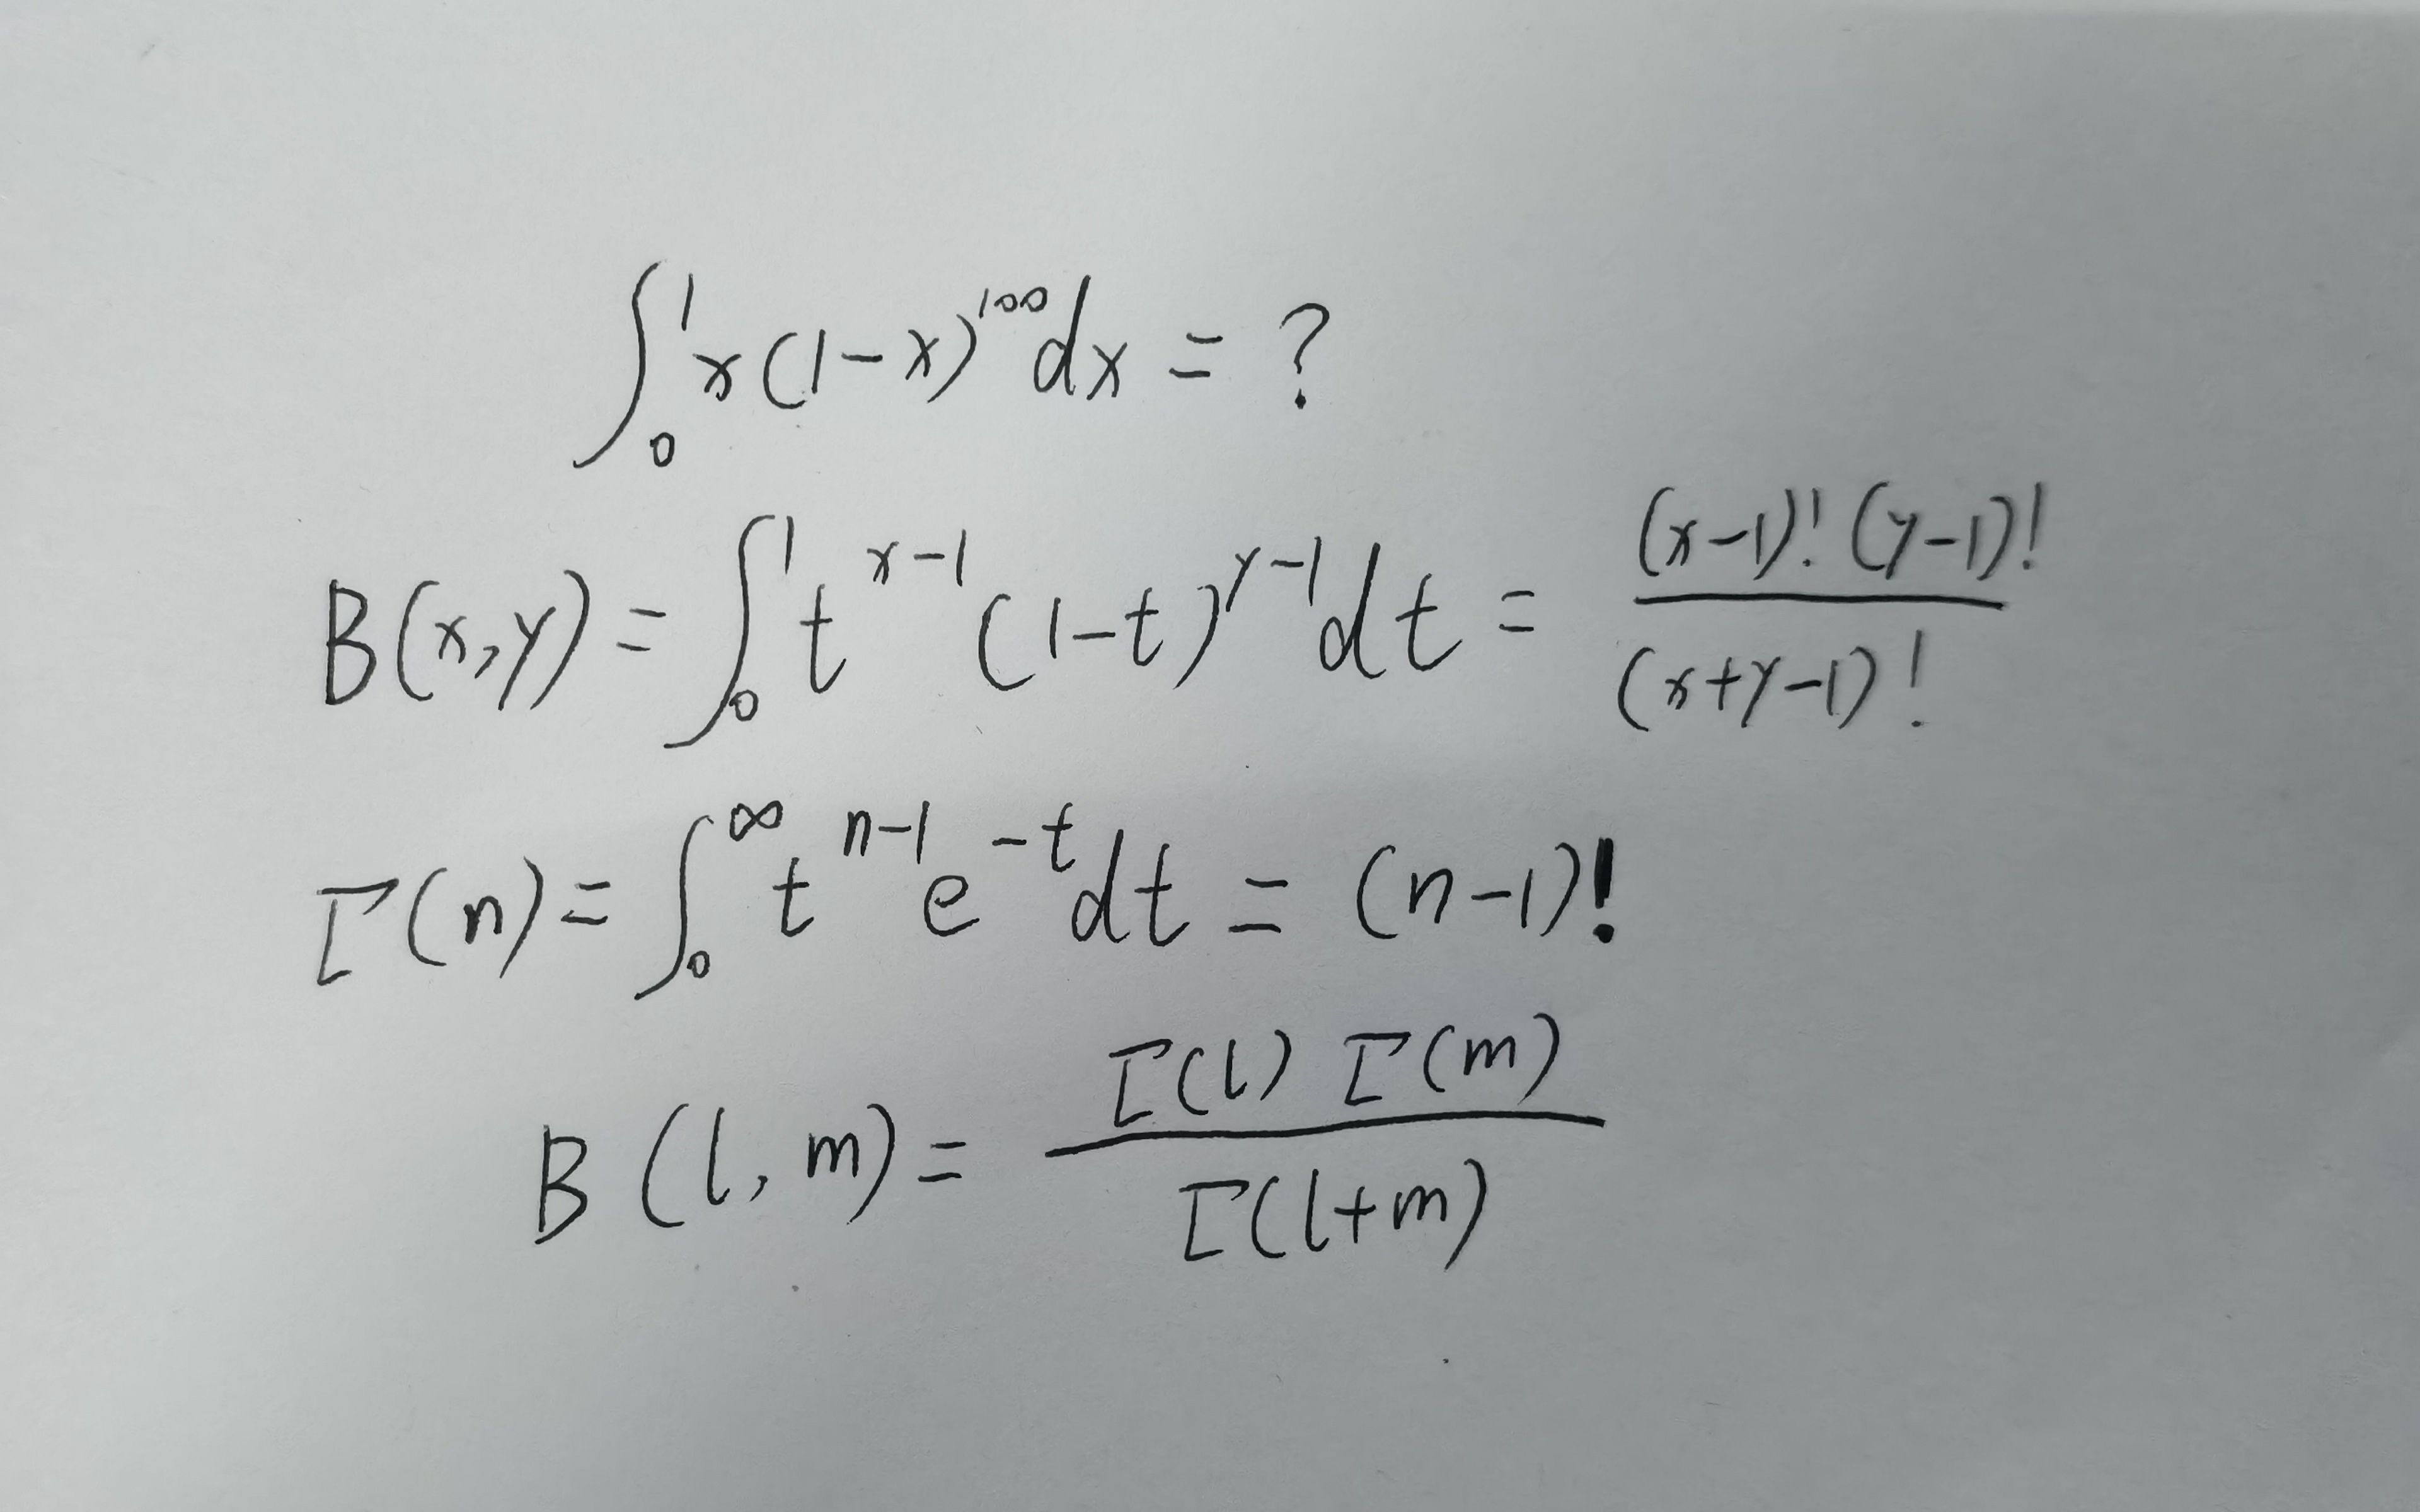 ∫₀¹ x(1-x)¹⁰⁰dx = ?
B(x,y) = ∫₀¹ t^(x-1) (1-t)^(y-1) dt = (x-1)! (y-1)! / (x+y-1)!
Γ(n) = ∫₀^∞ t^(n-1) e^(-t) dt = (n-1)!
B(l, m) = Γ(l) Γ(m) / Γ(l+m)